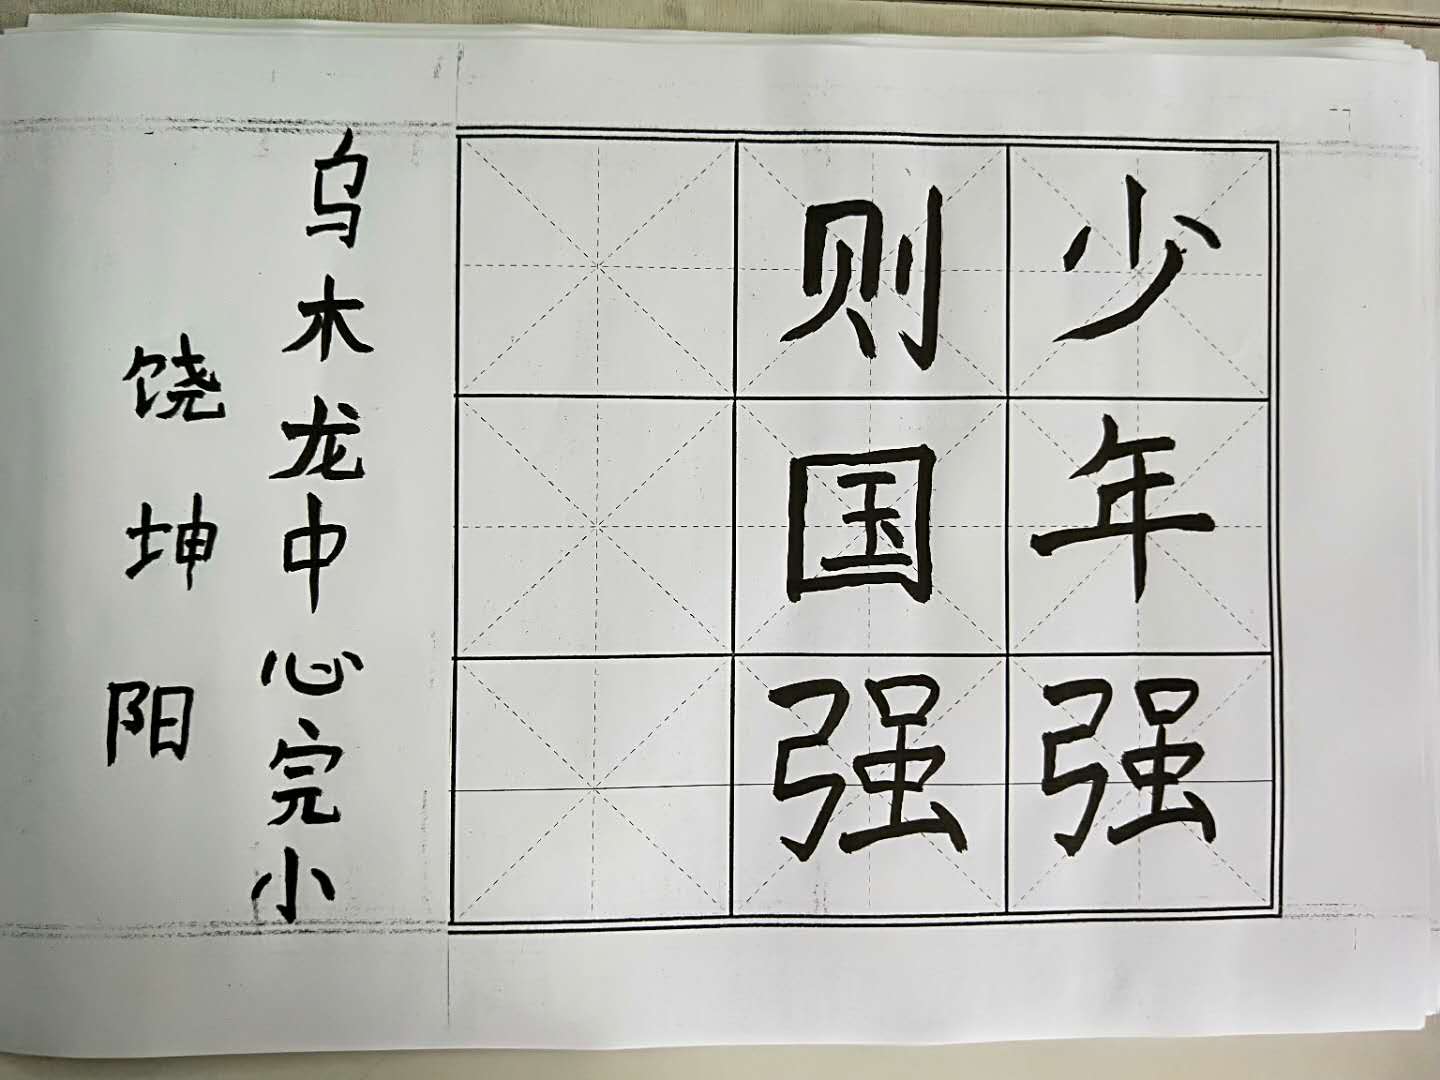 少年强
则国强
乌木龙中心完小
饶坤阳